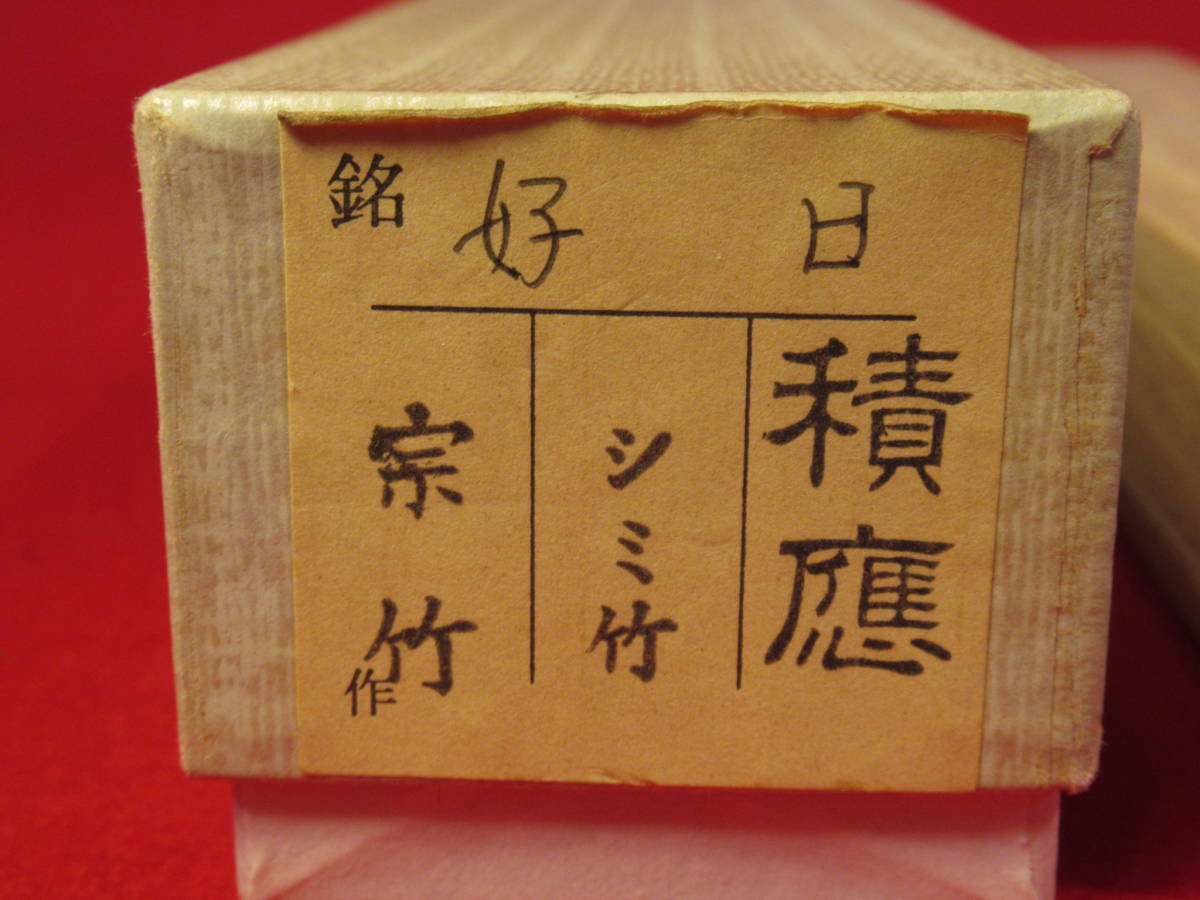 銘 好日
積應
シミ竹
宗竹作